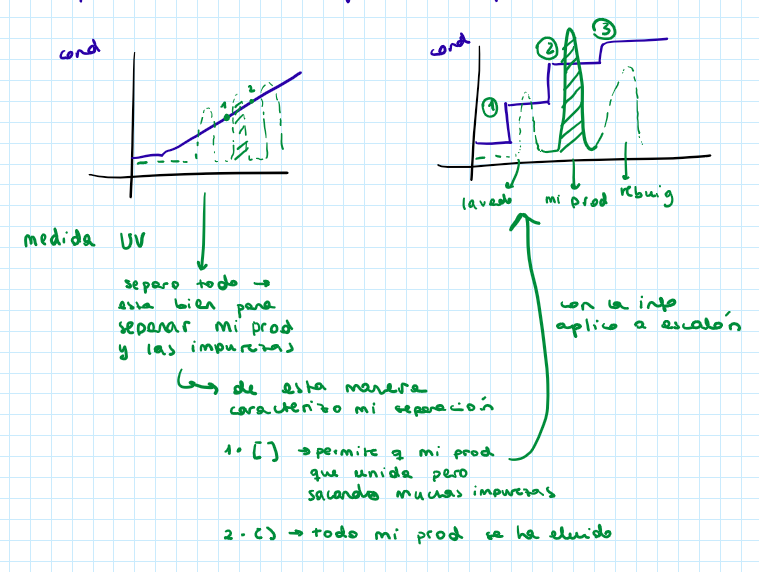 cond
1
2
cond
①
②
③
lavado
mi prod
rebuig
medida UV
separo todo →
esta bien para
separar mi prod
y las impurezas
con la info
aplico a escalón
de esta manera
caracterizo mi separación
1. [ ] → permite q mi prod
que unida pero
sacando muchas impurezas
2. [ ] → todo mi prod se ha eluido